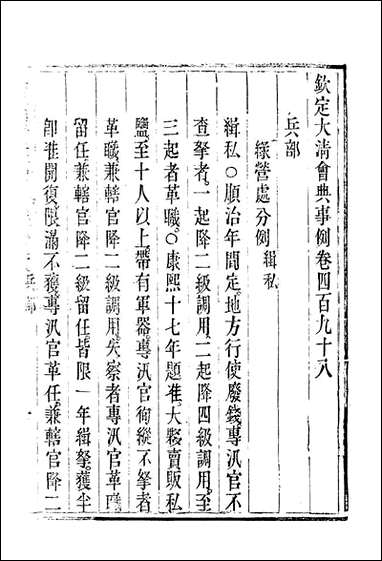 欽定大清會典事例卷四百九十八
兵部
綠營處分例 緝私
緝私○順治年間定。地方行使廢錢。專汛官不
查拏者。一起降二級調用。二起降四級調用。至
三起者革職。○康熙十七年題准。大夥賣販私
鹽。至十人以上。帶有軍器。專汛官徇縱不拏者
革職。兼轄官降二級調用。失察者專汛官革職
留任。兼轄官降二級留任。皆限一年緝拏。獲半
卽准開復。限滿不獲。專汛官革任。兼轄官降二